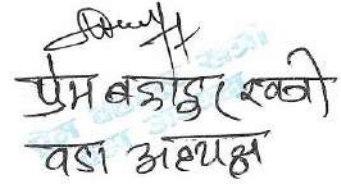 प्रेम बहादुर खत्री
वडा अध्यक्ष